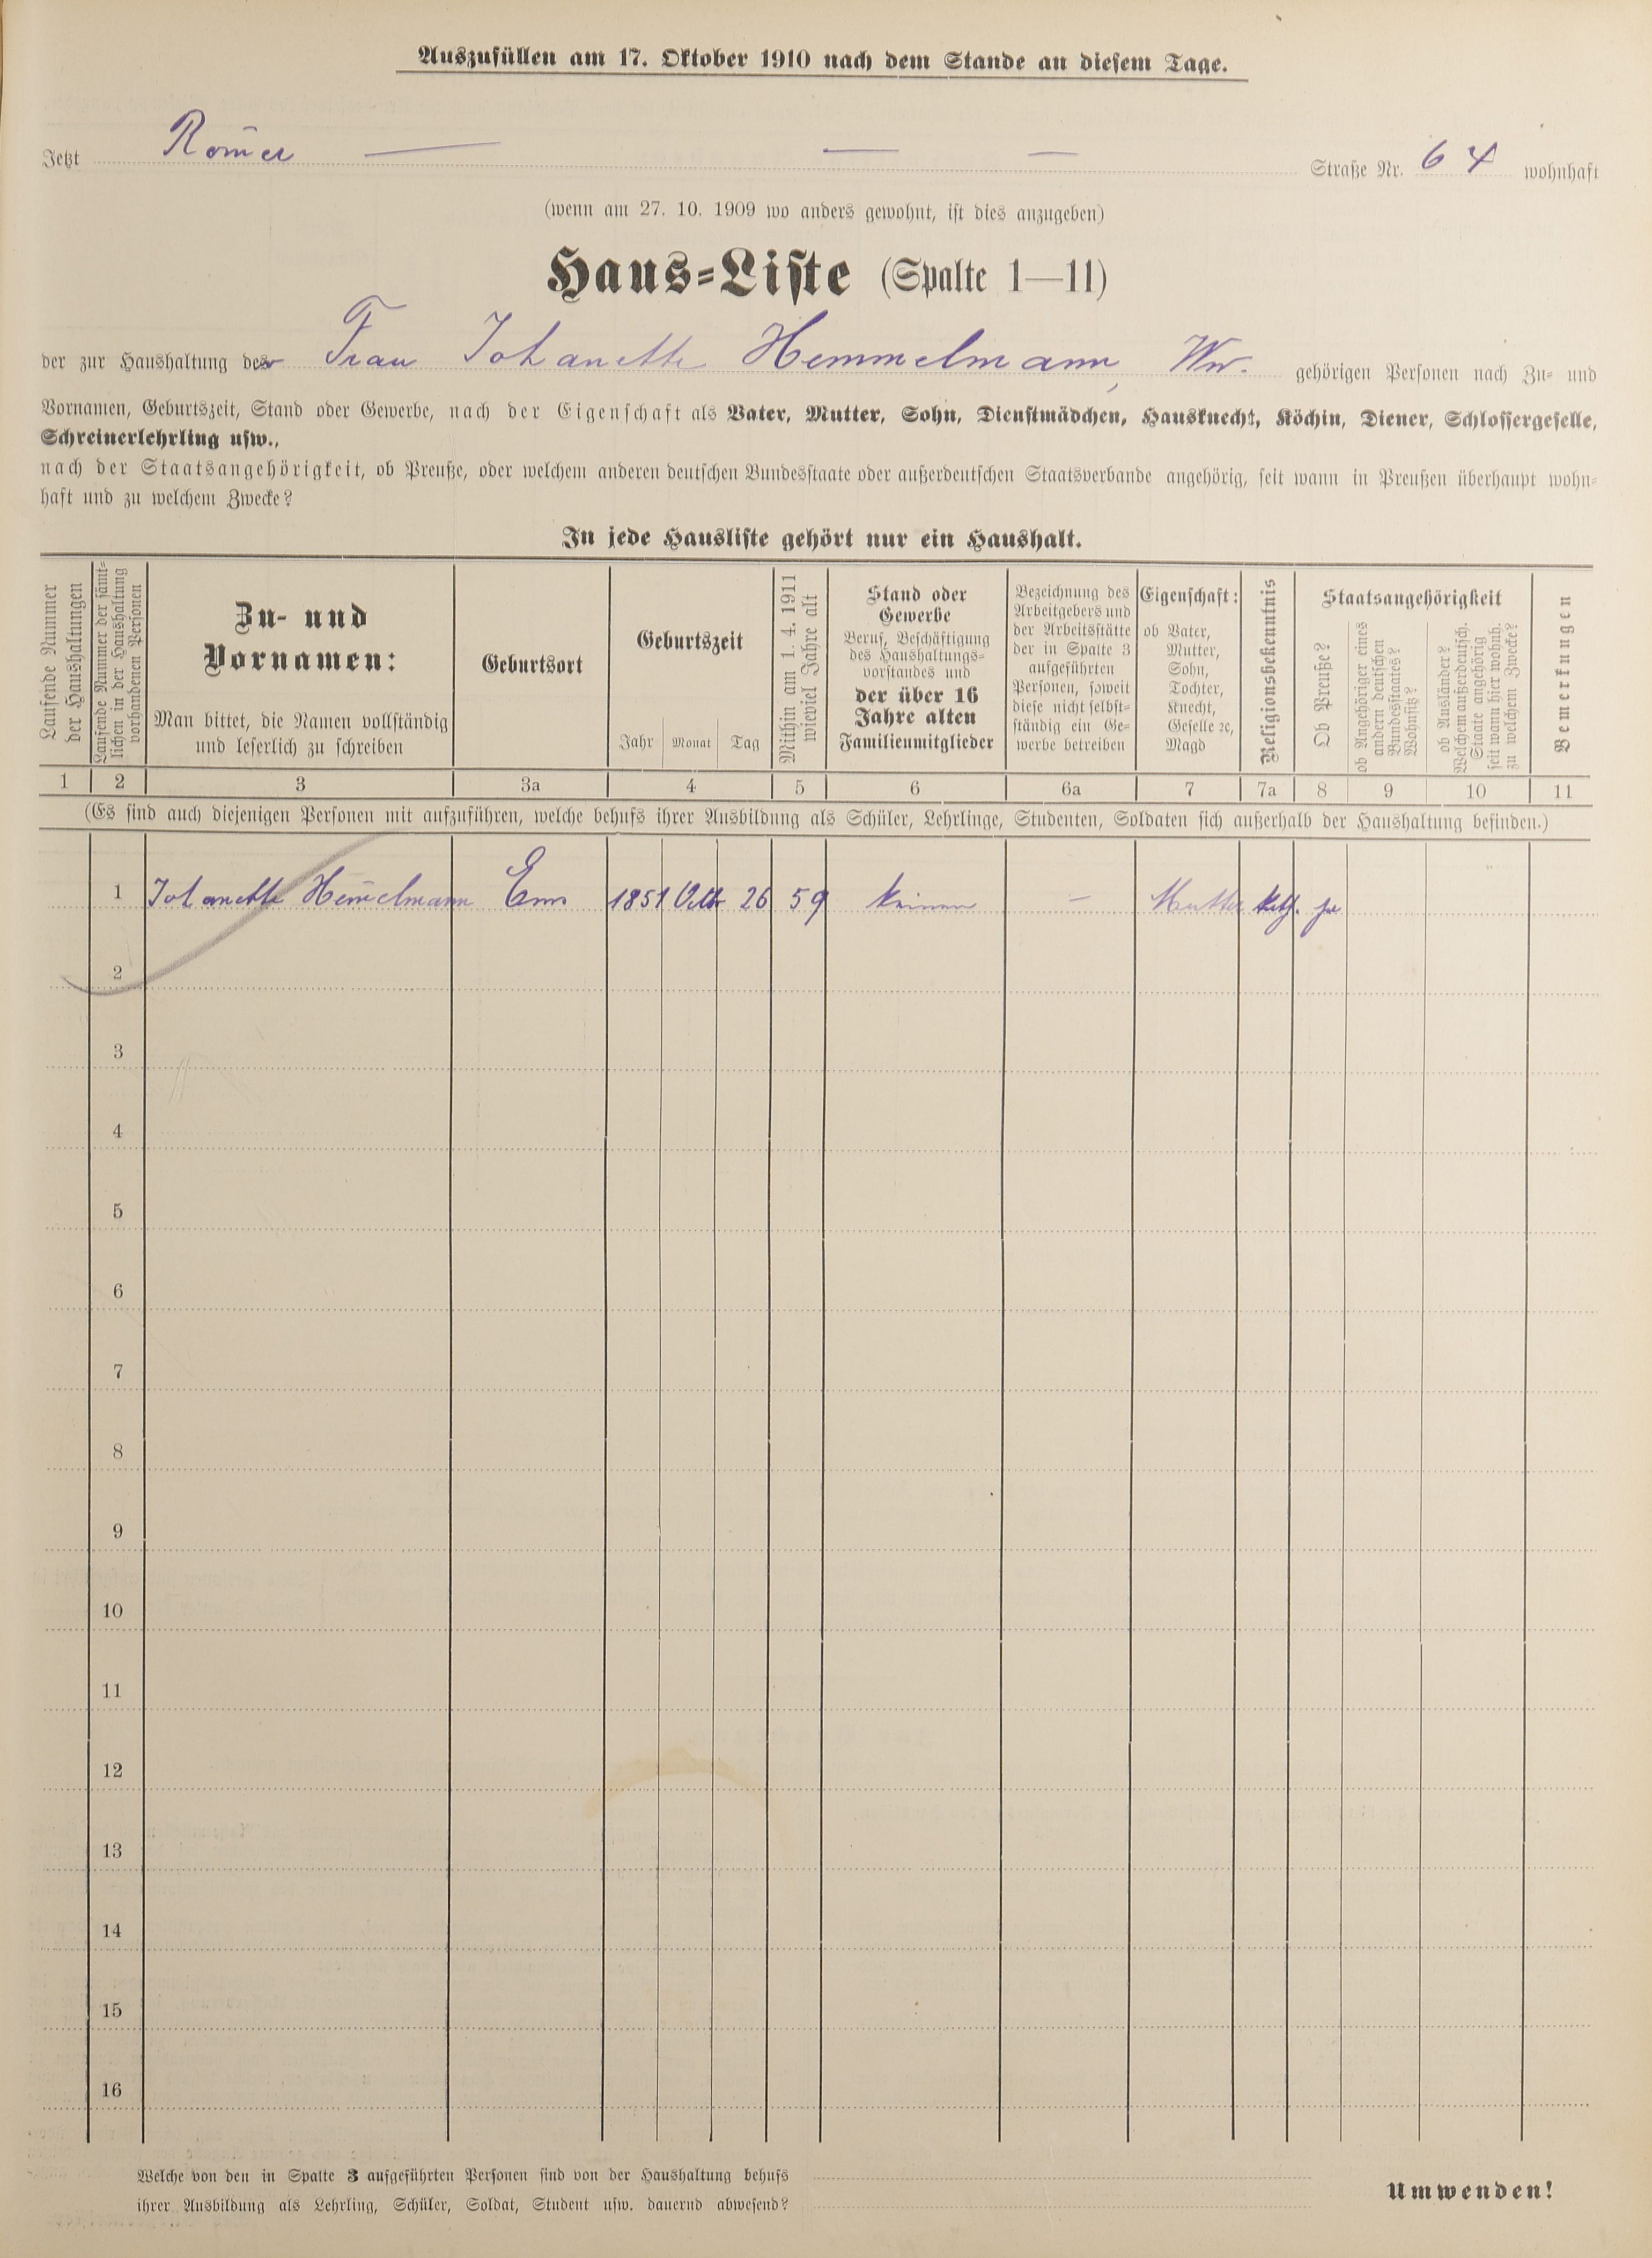 Auszufüllen am 17. Oktober 1910 nach dem Stande an diesem Tage.
Jetzt Römer — — — Straße Nr. 64 wohnhaft
(wenn am 27. 10. 1909 wo anders gewohnt, ist dies anzugeben)
Haus-Liste (Spalte 1—11)
der zur Haushaltung der Frau Johanette Hemmelmann, Ww. gehörigen Personen nach Zu- und
Vornamen, Geburtszeit, Stand oder Gewerbe, nach der Eigenschaft als Vater, Mutter, Sohn, Dienstmädchen, Hausknecht, Köchin, Diener, Schlossergeselle,
Schreinerlehrling usw.,
nach der Staatsangehörigkeit, ob Preuße, oder welchem anderen deutschen Bundesstaate oder außerdeutschen Staatsverbande angehörig, seit wann in Preußen überhaupt wohn-
haft und zu welchem Zwecke?
In jede Hausliste gehört nur ein Haushalt.
Laufende Nummer
der Haushaltungen
Laufende Nummer der sämt-
lichen in der Haushaltung
vorhandenen Personen
Zu- und
Vornamen:
Man bittet, die Namen vollständig
und leserlich zu schreiben
Geburtsort
Geburtszeit
Jahr Monat Tag
Mithin am 1. 4. 1911
wieviel Jahre alt
Stand oder
Gewerbe
Beruf, Beschäftigung
des Haushaltungs-
vorstandes und
der über 16
Jahre alten
Familienmitglieder
Bezeichnung des
Arbeitgebers und
der Arbeitsstätte
der in Spalte 3
aufgeführten
Personen, soweit
diese nicht selbst-
ständig ein Ge-
werbe betreiben
Eigenschaft:
ob Vater,
Mutter,
Sohn,
Tochter,
Knecht,
Geselle ec,
Magd
Religionsbekenntnis
Staatsangehörigkeit
Ob Preuße?
ob Angehöriger eines
andern deutschen
Bundesstaates?
Wohnsitz?
ob Ausländer?
Welchem außerdeutsch.
Staate angehörig
seit wann hier wohnh.
zu welchem Zwecke?
Bemerkungen
1 2 3 3a 4 5 6 6a 7 7a 8 9 10 11
(Es sind auch diejenigen Personen mit aufzuführen, welche behufs ihrer Ausbildung als Schüler, Lehrlinge, Studenten, Soldaten sich außerhalb der Haushaltung befinden.)
1 Johanette Hem̄elmann Ems 1851 Octbr 26 59 keinen — Mutter kath. ja
2
3
4
5
6
7
8
9
10
11
12
13
14
15
16
Welche von den in Spalte 3 aufgeführten Personen sind von der Haushaltung behufs
ihrer Ausbildung als Lehrling, Schüler, Soldat, Student usw. dauernd abwesend?
Umwenden!